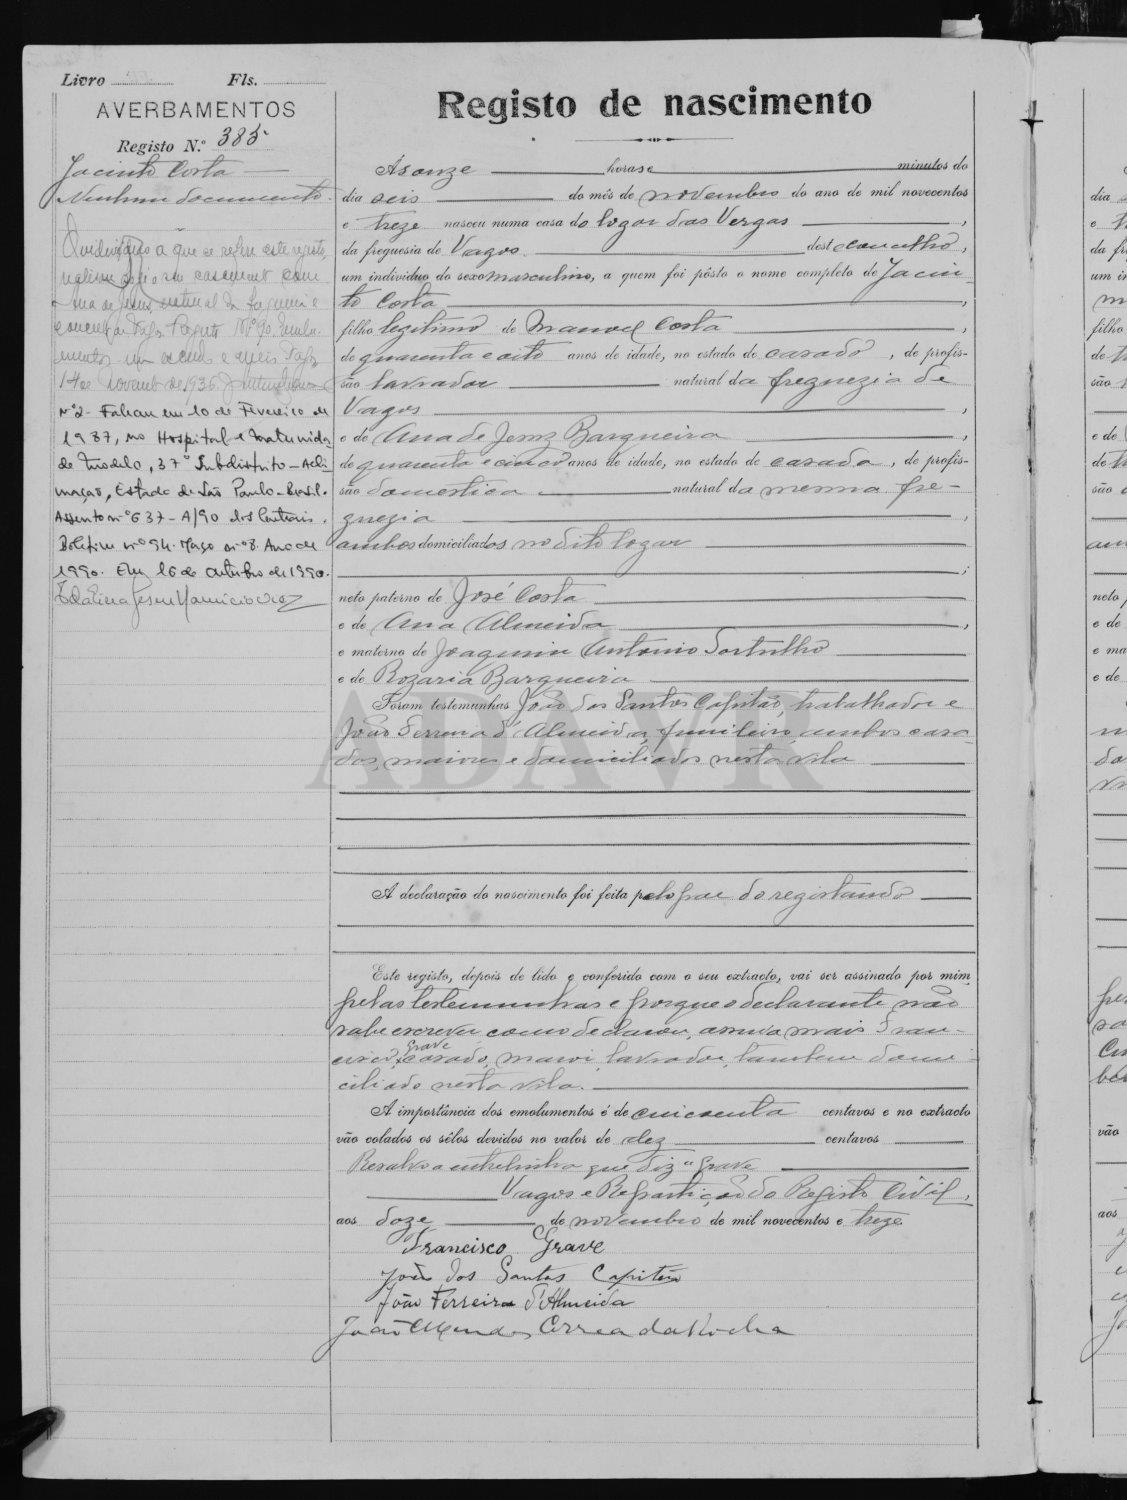 Livro Fls.
AVERBAMENTOS
Registo N.º 385
Jacinto Costa
Nenhum documento.
O individuo a que se refere este registo,
realisou hoje o seu casamento com
de Jesus, natural da freguesia e
concelho de Vagos. Registo Nº 90. Emolu-
mentos, um escudo e Vagos
14 de Novembro de 1936.
Nº 2 - Faleceu em 10 de Fevereiro de
1987, no Hospital e Maternida-
de Modelo, 37º Subdistrito - Acli-
mação, Estado de São Paulo - Brasil.
Assento nº 637 - A/90 dos Centrais.
Boletim nº 94. Maço nº 8. Ano de
1990. Em 16 de Outubro de 1990.
Registo de nascimento
Ás onze horas e minutos do
dia seis do mês de novembro do ano de mil novecentos
e treze nasceu numa casa do logar das Vergas,
da freguesia de Vagos deste concelho,
um indivíduo do sexo masculino, a quem foi pôsto o nome completo de Jacin-
to Costa,
filho legitimo de Manoel Costa,
de quarenta e oito anos de idade, no estado de casado, de profis-
são lavrador natural da freguezia de
Vagos,
e de Ana de Jesus Barqueira,
de quarenta e cinco anos de idade, no estado de casada, de profis-
são domestica natural da mesma fre-
guezia,
ambos domiciliados no dito logar
;
neto paterno de José Costa
e de Ana Almeida,
e materno de Joaquim Antonio Sortulhô
e de Rozaria Barqueira
Foram testemunhas João dos Santos Capitão, trabalhador e
João Ferreira d'Almeida, funileiro, ambos casa-
dos, maiores e domiciliados nesta vila
ADAVR
A declaração do nascimento foi feita pelo pae do registando
Este registo, depois de lido e conferido com o seu extracto, vai ser assinado por mim,
pelas testemunhas e porque o declarante não
sabe escrever como declarou, assina mais Fran-
Grave
cisco, casado, maior, lavrador, tambem domi-
ciliado nesta vila.
A importância dos emolumentos é de cincoenta centavos e no extracto
vão colados os sêlos devidos no valor de dez centavos
Resalvo a entrelinha que diz "Grave
Vagos e Repartição do Registo Civil,
aos doze de novembro de mil novecentos e treze
Francisco Grave
João dos Santos Capitão
João Ferreira d'Almeida
João Mendes Correa da Rocha